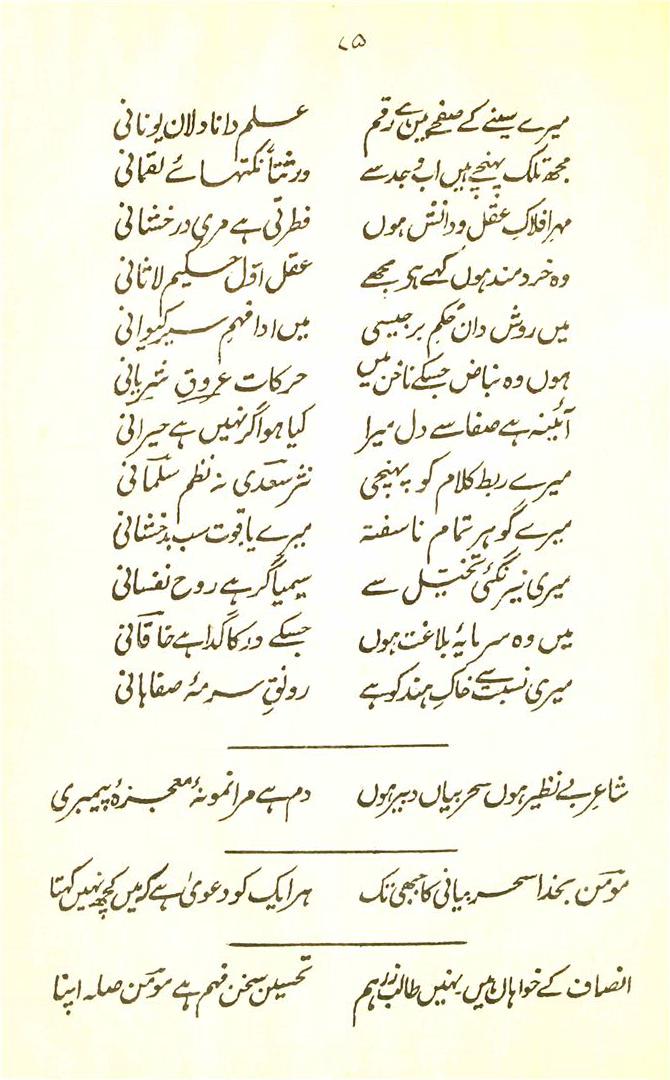 ۷۵
میرے سینے کے صفحے میں ہے رقم علم دانادلان یونانی
مجھ تلک پہنچے ہیں اب وجد سے ورثتاً نکتہائے لقمانی
مہر افلاکِ عقل و دانش ہوں فطرتی ہے مری درخشانی
وہ خردمند ہوں کہے ہے مجھے عقل اوّل حکیم لاثانی
میں روش دانِ حکمِ برجیسی میں ادا فہمِ سیر کیوانی
ہوں وہ نباض جسکے ناخن میں حرکات عروقِ شریانی
آئینہ ہے صفا سے دل میرا کیا ہوا گر نہیں ہے حیرانی
میرے ربط کلام کو پہنچی نثر سعدی نہ نظم سلمانی
میرے گوہر تمام ناسفتہ میرے یاقوت سب بدخشانی
میری نیرنگیٔ تخیّل سے سیمیا گر ہے روح نفسانی
میں وہ سرمایۂ بلاغت ہوں جسکے در کا گدا ہے خاقانی
میری نسبت سے خاکِ ہند کو ہے رونقِ سرمۂ صفاہانی
شاعرِ بے نظیر ہوں سحر بیاں دبیر ہوں دم ہے مرا نمونۂ معجزۂ پیمبری
مومن بخدا سحر بیانی کا جبھی تک ہر ایک کو دعویٰ ہے کہ میں کچھ نہیں کہتا
انصاف کے خواہاں ہیں نہیں طالبِ زر ہم تحسین سخن فہم ہے مومن صلہ اپنا